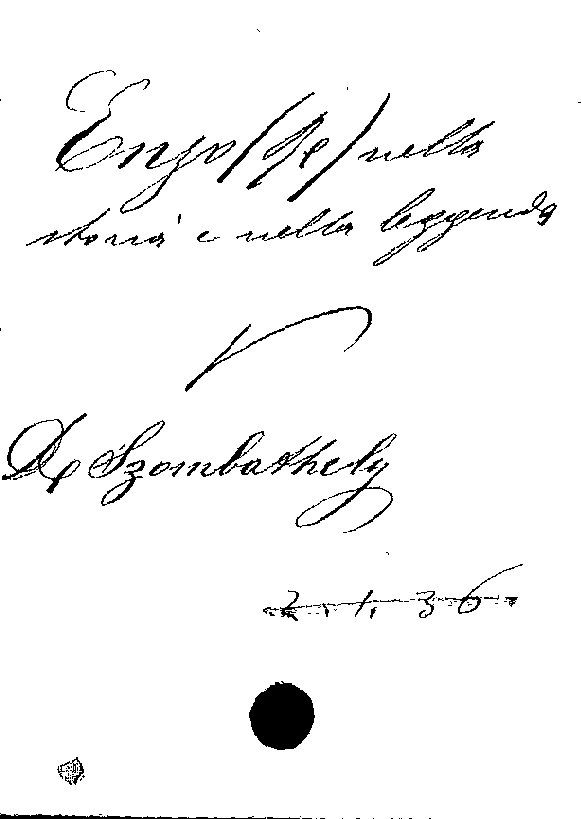 Enzo (Re) nella
storia e nella leggenda
V
De Szombathely
2.1.36